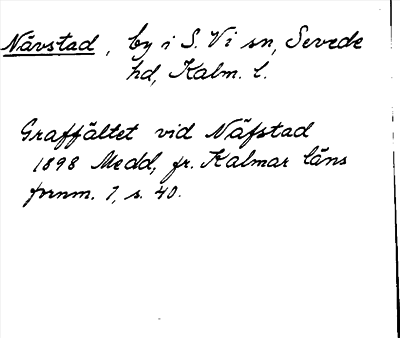 Nävstad, by i S. Vi sn, Sevede
hd, Kalm. l.
Graffältet vid Näfstad
1898 Medd, fr. Kalmar läns
fornm. 1, s. 40.